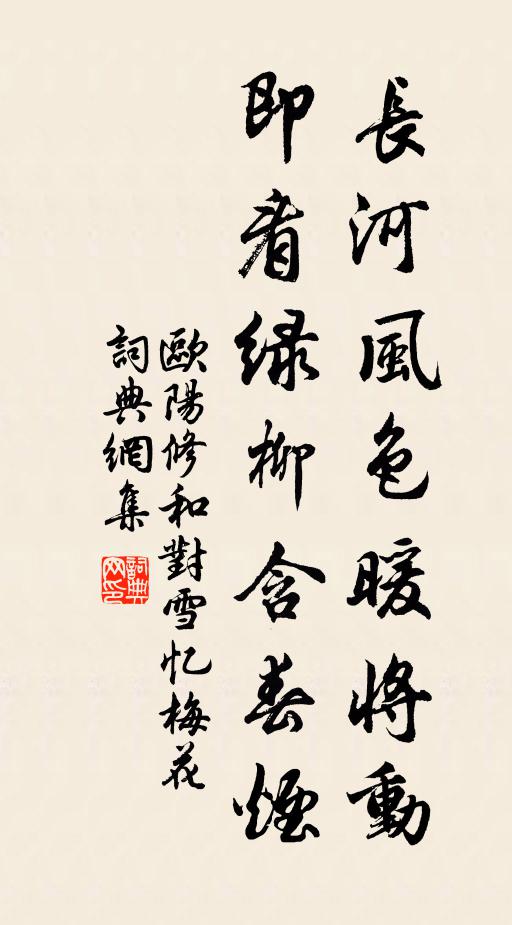 長河風色暖將動
即看绿柳含春煙
歐陽修和對雪忆梅花
詞典網集
詞典网印